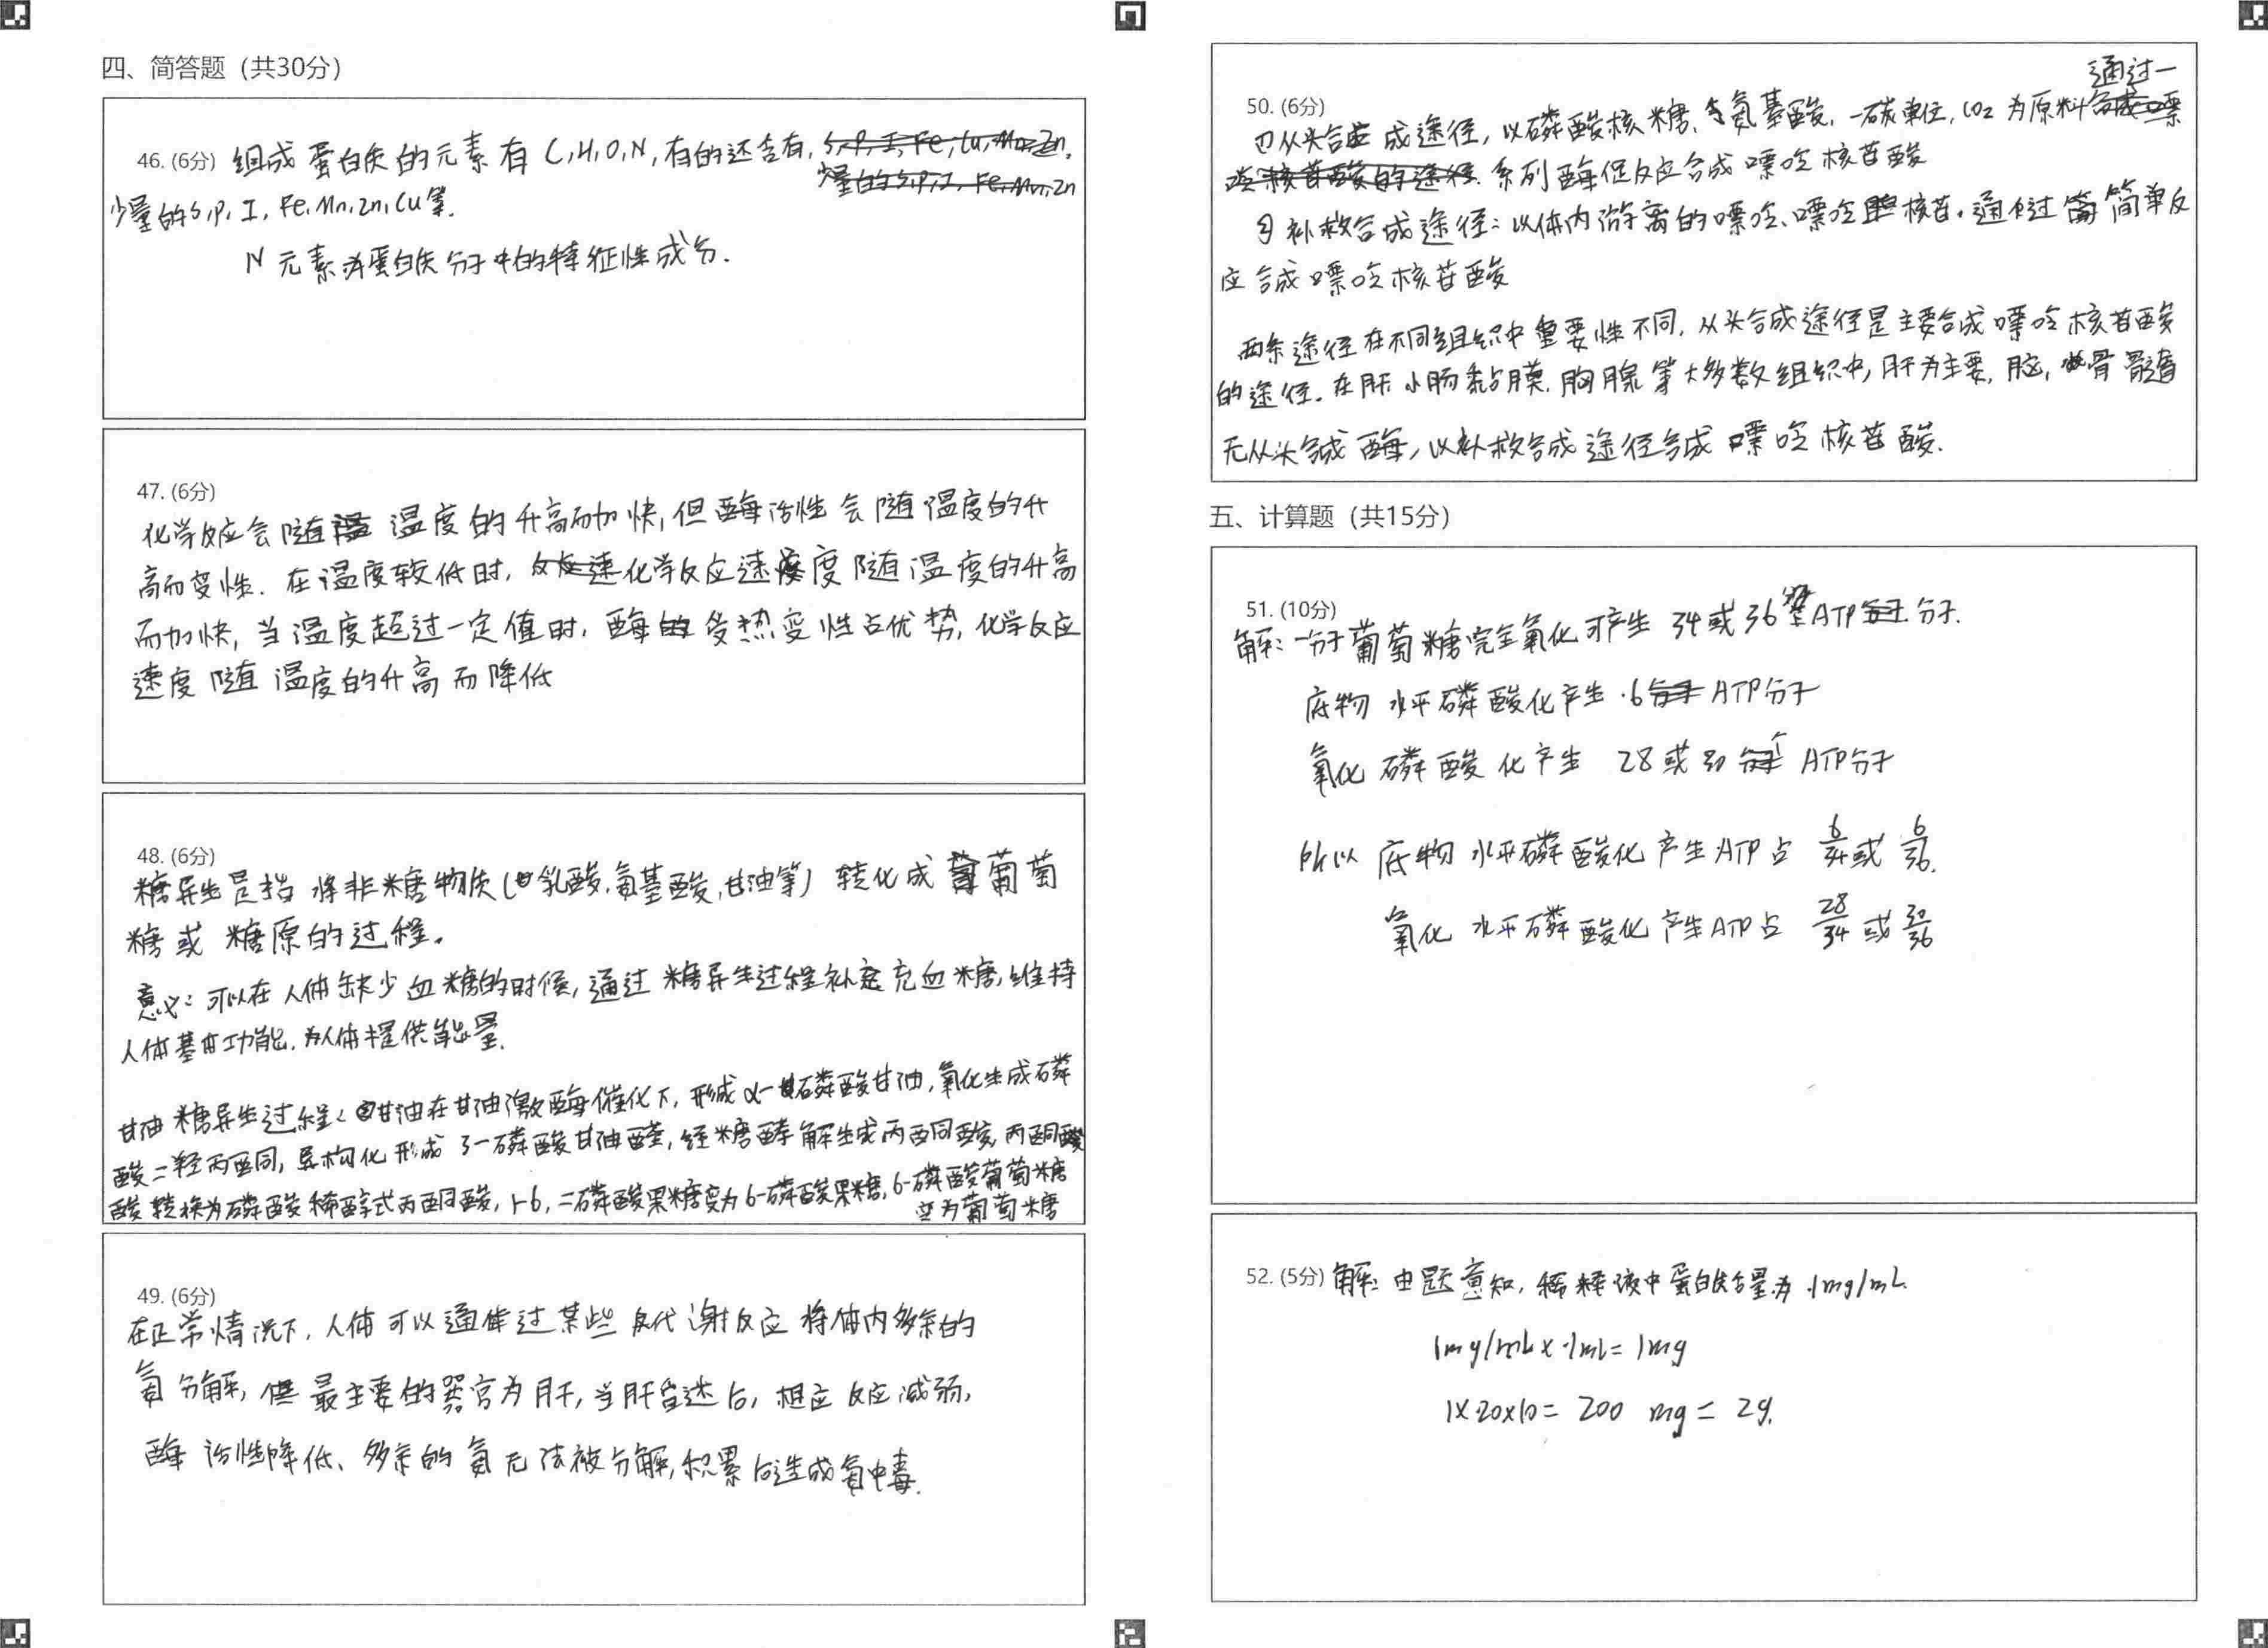 四、简答题（共30分）
46. (6分) 组成蛋白质的元素有 C,H,O,N,有的还含有,
少量的S,P,I,Fe,Mn,Zn,Cu等.
N元素为蛋白质分子中的特征性成分.
47. (6分)
化学反应会随温度的升高而加快,但酶活性会随温度的升
高而变性. 在温度较低时,化学反应速度随温度的升高
而加快,当温度超过一定值时,酶受热变性占优势,化学反应
速度随温度的升高而降低
48. (6分)
糖异生是指将非糖物质(乳酸.氨基酸,甘油等)转化成葡萄
糖或糖原的过程.
意义:可以在人体缺少血糖的时候,通过糖异生过程补充血糖,维持
人体基本功能.为人体提供能量.
甘油糖异生过程:甘油在甘油激酶催化下,形成α-磷酸甘油,氧化生成磷
酸二羟丙酮,异构化形成3-磷酸甘油醛,经糖酵解生成丙酮酸,丙酮酸
酸转换为磷酸稀醇式丙酮酸,1-6,二磷酸果糖变为6-磷酸果糖,6-磷酸葡萄糖
变为葡萄糖
49. (6分)
在正常情况下,人体可以通过某些代谢反应将体内多余的
氨分解,但最主要的器官为肝,当肝受迷后,相应反应减弱,
酶活性降低、多余的氨无法被分解,积累后造成氨中毒.
50. (6分)
通过一
①从头合成途径,以磷酸核糖、氨基酸.一碳单位,CO2为原料
系列酶促反应合成嘌呤核苷酸
②补救合成途径:以体内游离的嘌呤、嘌呤核苷.通过简单反
应合成嘌呤核苷酸
两条途径在不同组织中重要性不同.从头合成途径是主要合成嘌呤核苷酸
的途径.在肝小肠黏膜.胸腺等大多数组织中,肝为主要,脑,骨髓
无从头合成酶,以补救合成途径合成嘌呤核苷酸.
五、计算题（共15分）
51. (10分)
解:一分子葡萄糖完全氧化可产生 34或36 ATP分子.
底物水平磷酸化产生 6 ATP分子
氧化磷酸化产生 28或30个 ATP分子
所以底物水平磷酸化产生ATP占 6/34 或 6/36.
氧化水平磷酸化产生ATP占 28/34 或 30/36
52. (5分) 解:由题意知,稀释液中蛋白质含量为 1mg/mL
1mg/mL×1mL=1mg
1×20×10=200 mg=2g.